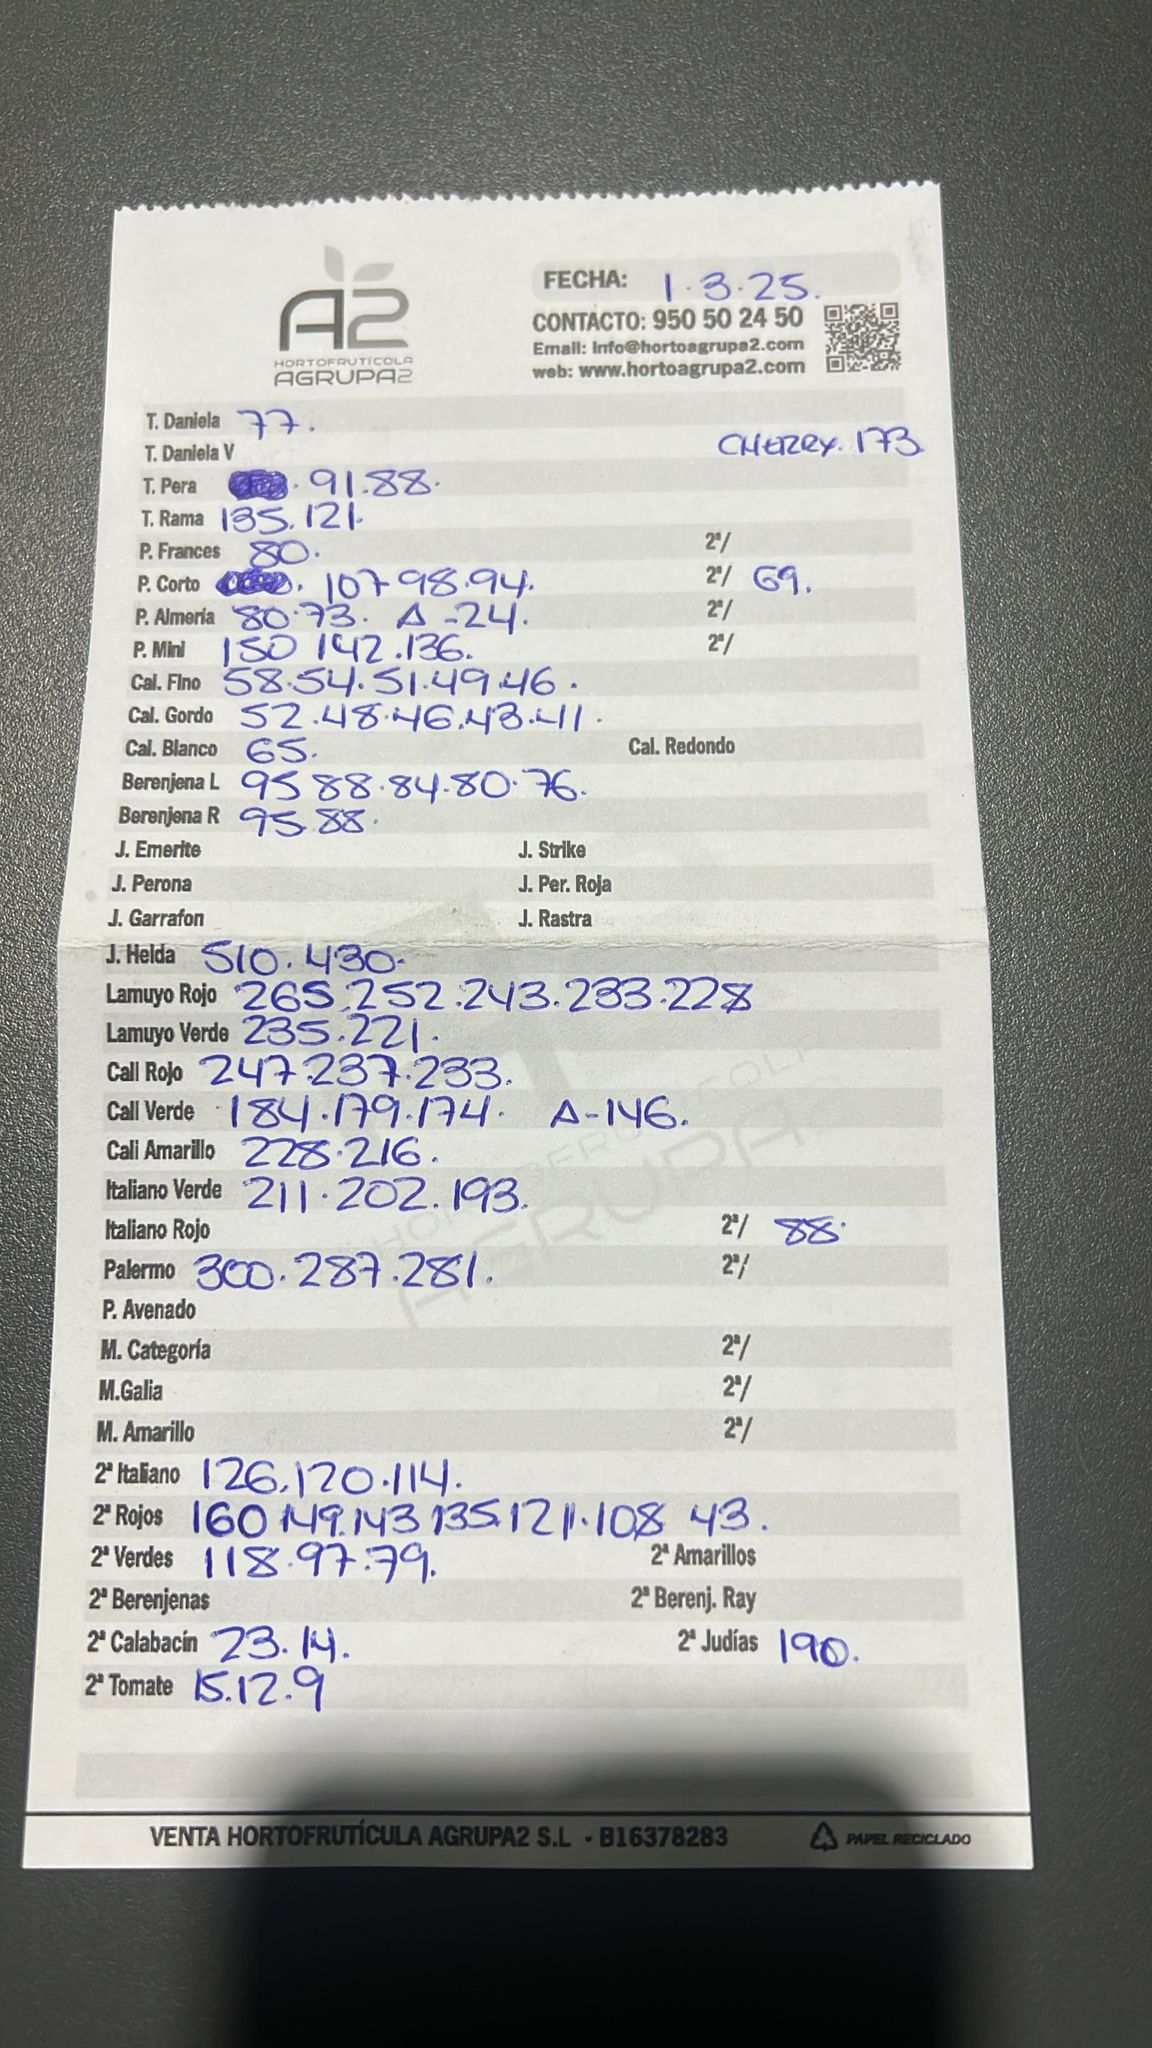 A2
HORTOFRUTÍCOLA
AGRUPA2
FECHA: 1.3.25.
CONTACTO: 950 50 24 50
Email: info@hortoagrupa2.com
web: www.hortoagrupa2.com
T. Daniela 77.
T. Daniela V CHERRY. 173
T. Pera . 91.88.
T. Rama 135.121.
P. Frances 80. 2ª/
P. Corto . 107 98.94. 2ª/ 69.
P. Almería 80.73. A -24. 2ª/
P. Mini 150 142.136. 2ª/
Cal. Fino 58.54.51.49.46.
Cal. Gordo 52.48.46.43.41.
Cal. Blanco 65. Cal. Redondo
Berenjena L 95 88.84.80.76.
Berenjena R 95.88.
J. Emerite J. Strike
J. Perona J. Per. Roja
J. Garrafon J. Rastra
J. Helda 510.430.
Lamuyo Rojo 265.252.243.233.228
Lamuyo Verde 235.221.
Cali Rojo 247.237.233.
Cali Verde 184.179.174. A-146.
Cali Amarillo 228.216.
Italiano Verde 211.202.193.
Italiano Rojo 2ª/ 88.
Palermo 300.287.281. 2ª/
P. Avenado
M. Categoría 2ª/
M.Galia 2ª/
M. Amarillo 2ª/
2ª Italiano 126.120.114.
2ª Rojos 160 149.143 135.121.108 43.
2ª Verdes 118.97.79. 2ª Amarillos
2ª Berenjenas 2ª Berenj. Ray
2ª Calabacín 23.14. 2ª Judías 190.
2ª Tomate 15.12.9
VENTA HORTOFRUTÍCULA AGRUPA2 S.L - B16378283 PAPEL RECICLADO